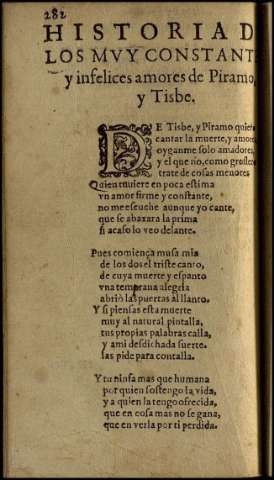 282
HISTORIA D
LOS MVY CONSTANT
y infelices amores de Piramo,
y Tisbe.
DE Tisbe, y Piramo quier
cantar la muerte, y amore
oyganme solo amadores,
y el que no, como grosser
trate de cosas menores
Quien tuuiere en poca estima
vn amor firme y constante,
no me escuche aunque yo cante,
que se abaxara la prima
si acaso lo veo delante.
Pues comiença musa mia
de los dos el triste canto,
de cuya muerte y espanto
vna temprana alegria
abriò las puertas al llanto.
Y si piensas esta muerte
muy al natural pintalla,
tus propias palabras calla,
y a mi desdichada suerte.
las pide para contalla.
Y tu ninfa mas que humana
por quien sostengo la vida,
y a quien la tengo ofrecida,
que en cosa mas no se gana,
que en verla por ti perdida.